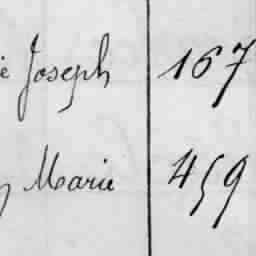 é Joseph 167
y Marie 459